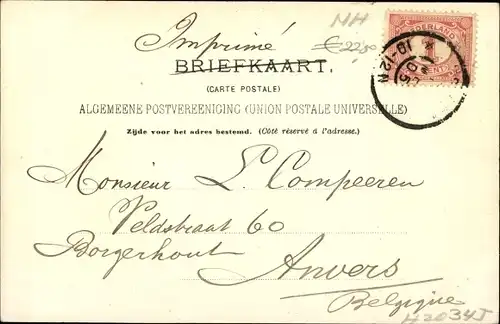 NH
Imprimé
€ 22,50
NEDERLAND
1
CENT
10-12N
BRIEFKAART.
(CARTE POSTALE)
ALGEMEENE POSTVEREENIGING (UNION POSTALE UNIVERSELLE)
Zijde voor het adres bestemd. (Côté réservé à l'adresse.)
Monsieur L. Compeeren
Veldstraat 60
Borgerhout
Anvers
Belgique